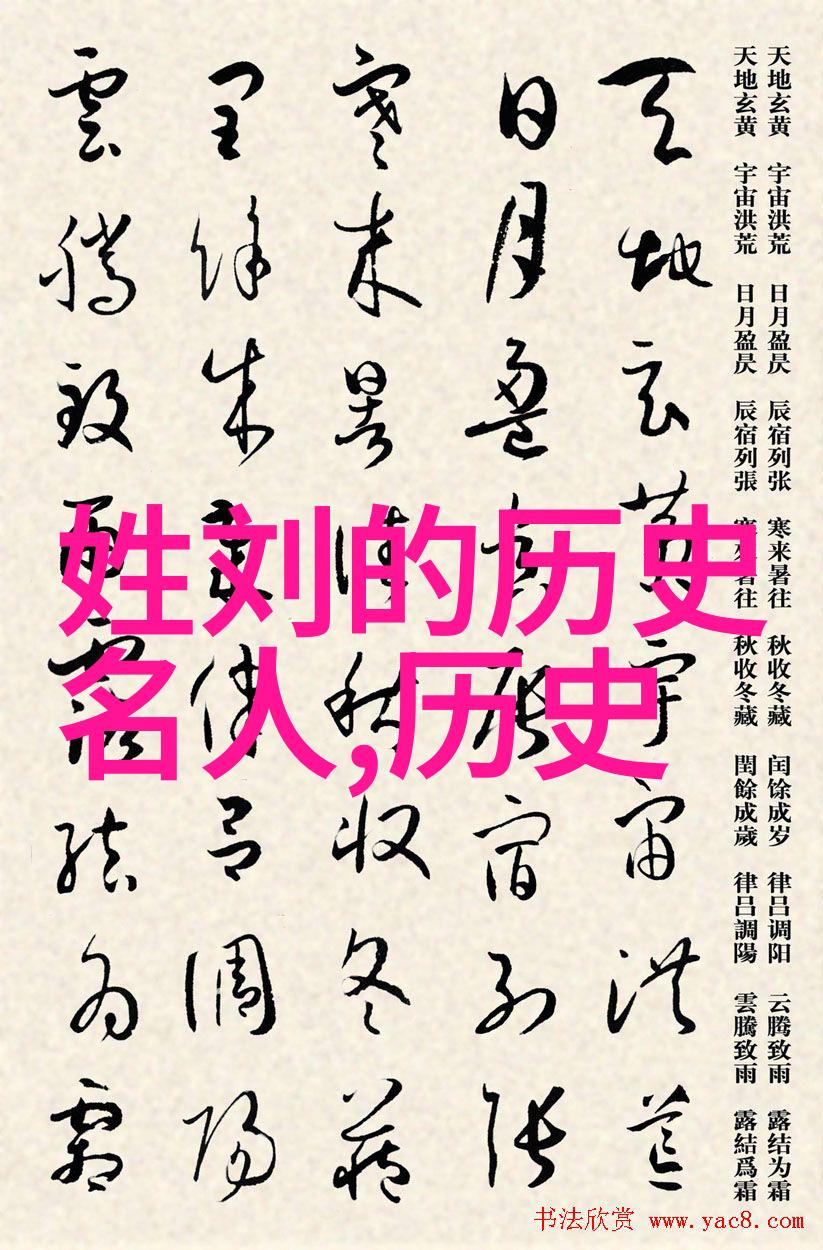 姓刘的历史
名人,历史
天地玄黄 宇宙洪荒 日月盈昃 辰宿列张 寒来暑往 秋收冬藏 闰馀成岁 律吕调阳 云腾致雨 露结为霜
天地玄黄 宇宙洪荒 日月盈昃 辰宿列張 寒來暑往 秋收冬藏 閏餘成歲 律吕調陽 雲騰致雨 露結爲霜
天地玄黄宇宙洪荒
日月盈昃辰宿列張
寒来暑往秋收冬藏
閏餘成歲律吕調陽
雲騰致雨露結為霜
书法欣赏 www.yac8.com